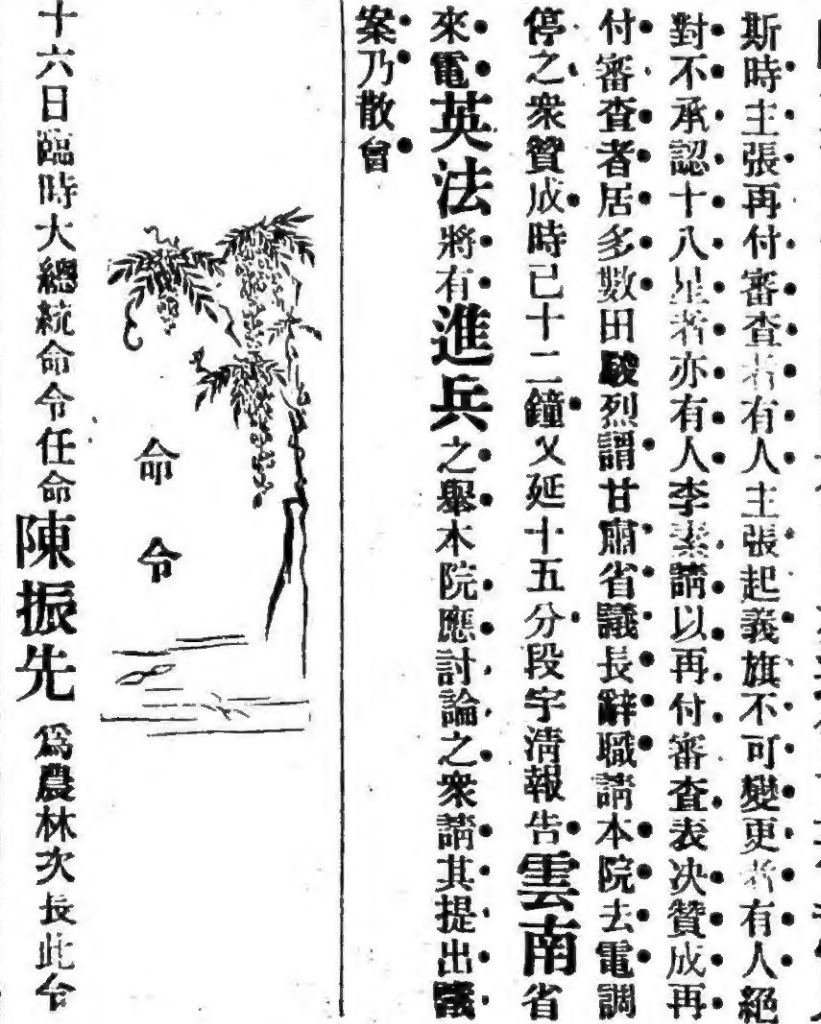 斯時主張再付審查者有人主張起義旗不可變更者有人絕
對不承認十八星者亦有人李素請以再付審查表决贊成再
付審查者居多數田駿烈謂甘肅省議長辭職請本院去電調
停之衆贊成時已十二鐘又延十五分段宇淸報告雲南省
來電英法將有進兵之舉本院應討論之衆請其提出議
案乃散會
命令
十六日臨時大總統命令任命陳振先爲農林次長此令